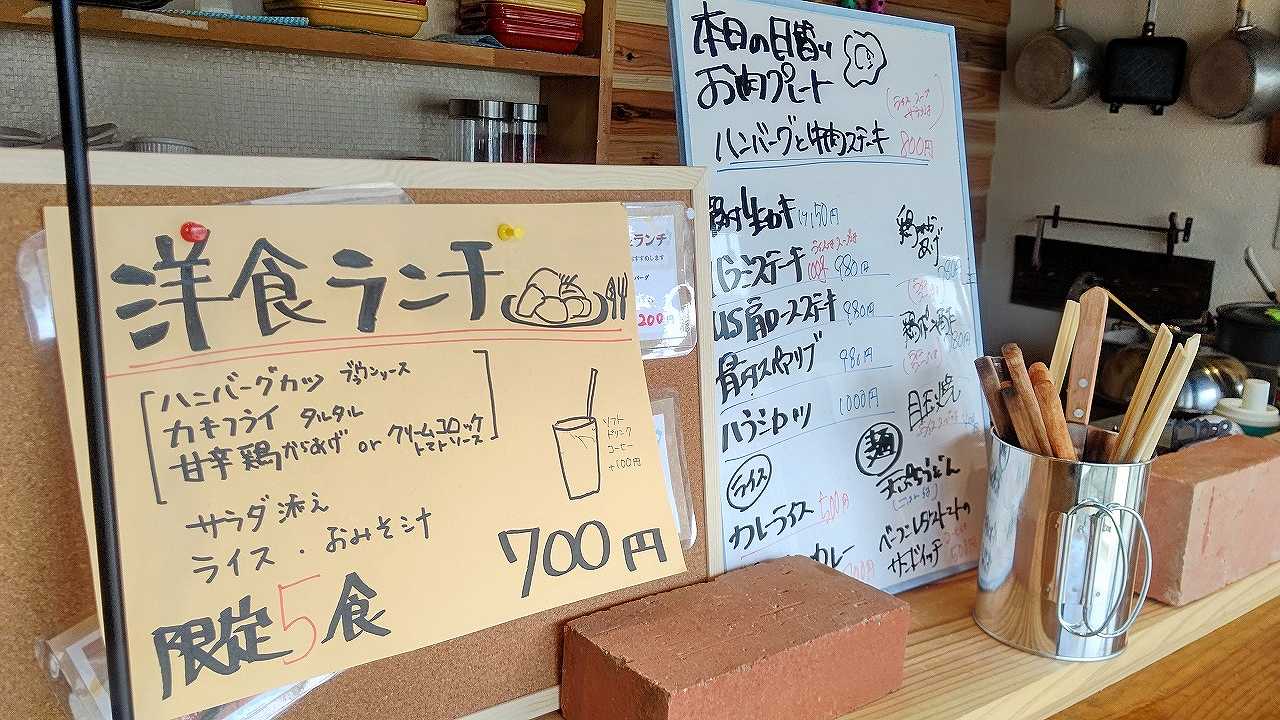 洋食ランチ
ハンバーグカツ ブラウンソース
カキフライ タルタル
甘辛鶏からあげ or クリームコロッケ
トマトソース
サラダ添え
ライス・おみそ汁
限定5食
700円
ソフト
ドリンク
コーヒー
+100円
ランチ
200円
本日の日替り
お肉プレート
ハンバーグと牛肉ステーキ 800円
ハラミステーキ 980円
US肩ロースステーキ 980円
骨付スペアリブ 980円
1000円
ライス
カレーライス 500円
カレー
鶏からあげ
麺
天ぷらうどん
ベーコンレタストマトの
サンドイッチ